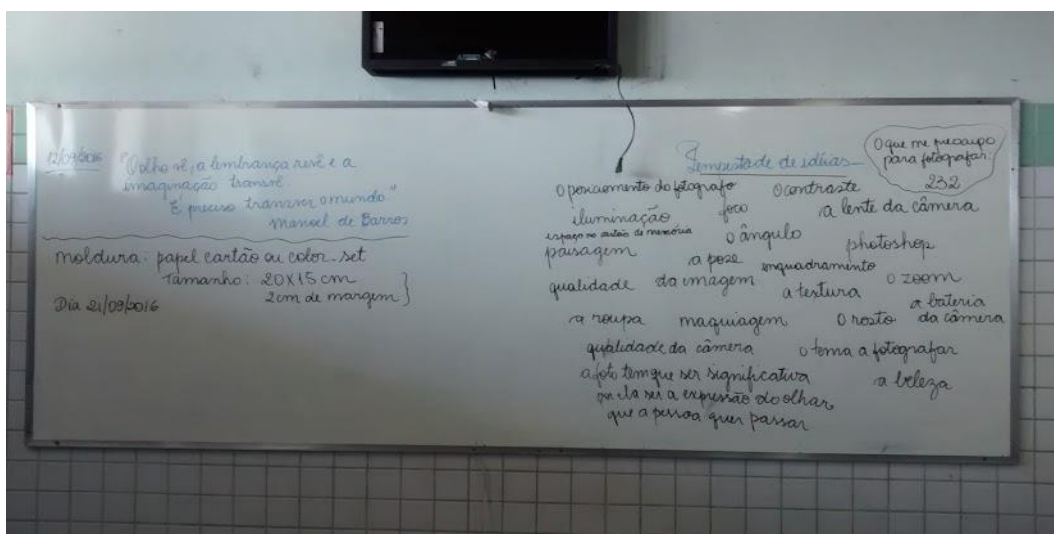 12/09/2016 "O olho vê, a lembrança revê e a
imaginação transvê.
É preciso transver o mundo"
Manoel de Barros
moldura: papel cartão ou color-set
Tamanho: 20X15 cm
2cm de margem }
Dia 21/09/2016
Tempestade de idéias
O que me preocupo
para fotografar:
232
O posicionamento do fotografo
O contraste
iluminação
foco
a lente da câmera
espaço no cartão de memória
o ângulo
photoshop
paisagem
a pose
enquadramento
qualidade da imagem
a textura
o zoom
a bateria
da câmera
a roupa
maquiagem
O rosto
qualidade da câmera
o tema a fotografar
a foto tem que ser significativa
a beleza
ou ela ser a expressão do olhar
que a pessoa quer passar